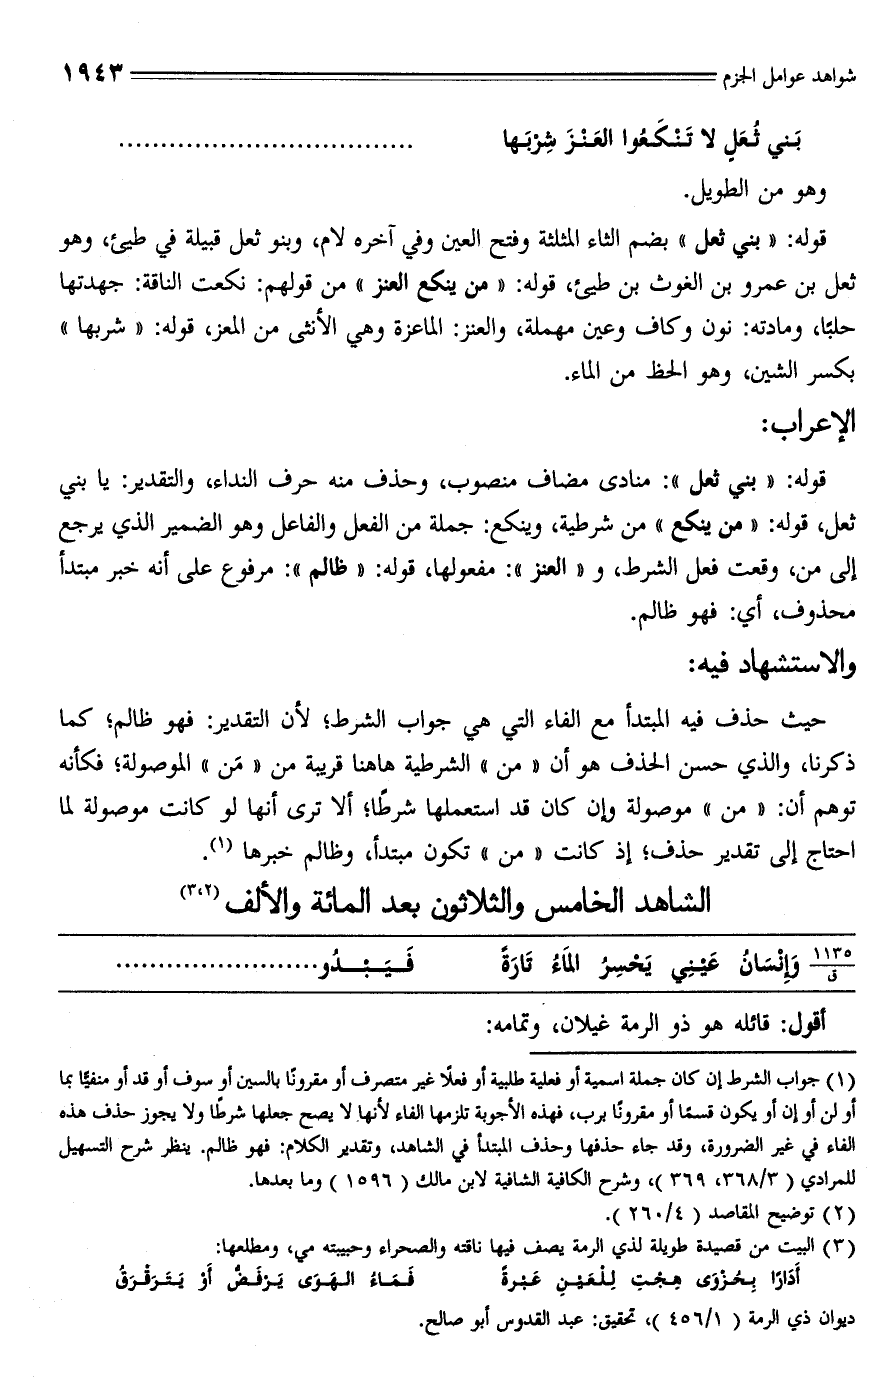 شواهد عوامل الجزم ١٩٤٣
بَني ثُعَلٍ لا تَنْكَعُوا العَنْزَ شِرْبَها ..................................
وهو من الطويل.
قوله: « بني ثعل » بضم الثاء المثلثة وفتح العين وفي آخره لام، وبنو ثعل قبيلة في طيئ، وهو
ثعل بن عمرو بن الغوث بن طيئ، قوله: « من ينكع العنز » من قولهم: نكعت الناقة: جهدتها
حلبًا، ومادته: نون وكاف وعين مهملة، والعنز: الماعزة وهي الأنثى من المعز، قوله: « شربها »
بكسر الشين، وهو الحظ من الماء.
الإعراب:
قوله: « بني ثعل »: منادى مضاف منصوب، وحذف منه حرف النداء، والتقدير: يا بني
ثعل، قوله: « من ينكع » من شرطية، وينكع: جملة من الفعل والفاعل وهو الضمير الذي يرجع
إلى من، وقعت فعل الشرط، و « العنز »: مفعولها، قوله: « ظالم »: مرفوع على أنه خبر مبتدأ
محذوف، أي: فهو ظالم.
والاستشهاد فيه:
حيث حذف فيه المبتدأ مع الفاء التي هي جواب الشرط؛ لأن التقدير: فهو ظالم؛ كما
ذكرنا، والذي حسن الحذف هو أن « من » الشرطية هاهنا قريبة من « مَن » الموصولة؛ فكأنه
توهم أن: « من » موصولة وإن كان قد استعملها شرطًا؛ ألا ترى أنها لو كانت موصولة لما
احتاج إلى تقدير حذف؛ إذ كانت « من » تكون مبتدأ، وظالم خبرها (١).
الشاهد الخامس والثلاثون بعد المائة والألف (٣،٢)
١١٣٥/ق وَإِنْسَانُ عَيْنِي يَحْسِرُ المَاءُ تَارَةً فَـيَـبْـدُو........................
أقول: قائله هو ذو الرمة غيلان، وتمامه:
(١) جواب الشرط إن كان جملة اسمية أو فعلية طلبية أو فعلًا غير متصرف أو مقرونًا بالسين أو سوف أو قد أو منفيًا بما
أو لن أو إن أو يكون قسمًا أو مقرونًا برب، فهذه الأجوبة تلزمها الفاء لأنها لا يصح جعلها شرطًا ولا يجوز حذف هذه
الفاء في غير الضرورة، وقد جاء حذفها وحذف المبتدأ في الشاهد، وتقدير الكلام: فهو ظالم. ينظر شرح التسهيل
للمرادي ( ٣٦٨/٣، ٣٦٩ )، وشرح الكافية الشافية لابن مالك ( ١٥٩٦ ) وما بعدها.
(٢) توضيح المقاصد ( ٢٦٠/٤ ).
(٣) البيت من قصيدة طويلة لذي الرمة يصف فيها ناقته والصحراء وحبيبته مي، ومطلعها:
أَدَارًا بِحُزْوَى هِجْتِ لِلْعَيْنِ عَبْرَةً فَمَاءُ الهَوَى يَرْفَضُّ أَوْ يَتَرَقْرَقُ
ديوان ذي الرمة ( ٤٥٦/١ )، تحقيق: عبد القدوس أبو صالح.